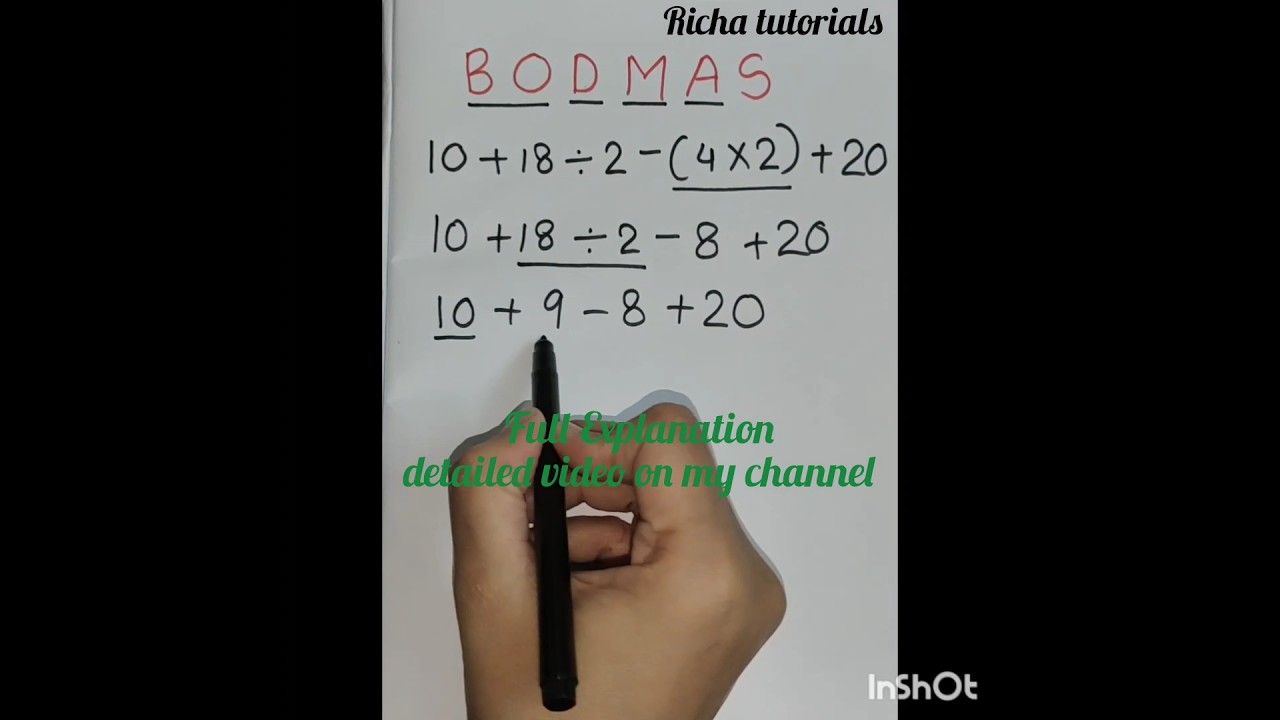 Richa tutorials
BODMAS
10 + 18 ÷ 2 - (4 × 2) + 20
10 + 18 ÷ 2 - 8 + 20
10 + 9 - 8 + 20
Full Explanation
detailed video on my channel
InShOt